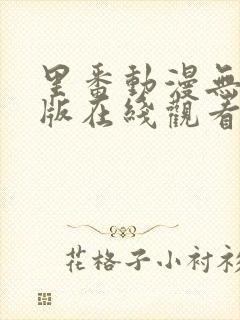 里番動漫無
版在綫觀看
花格子小衬衫